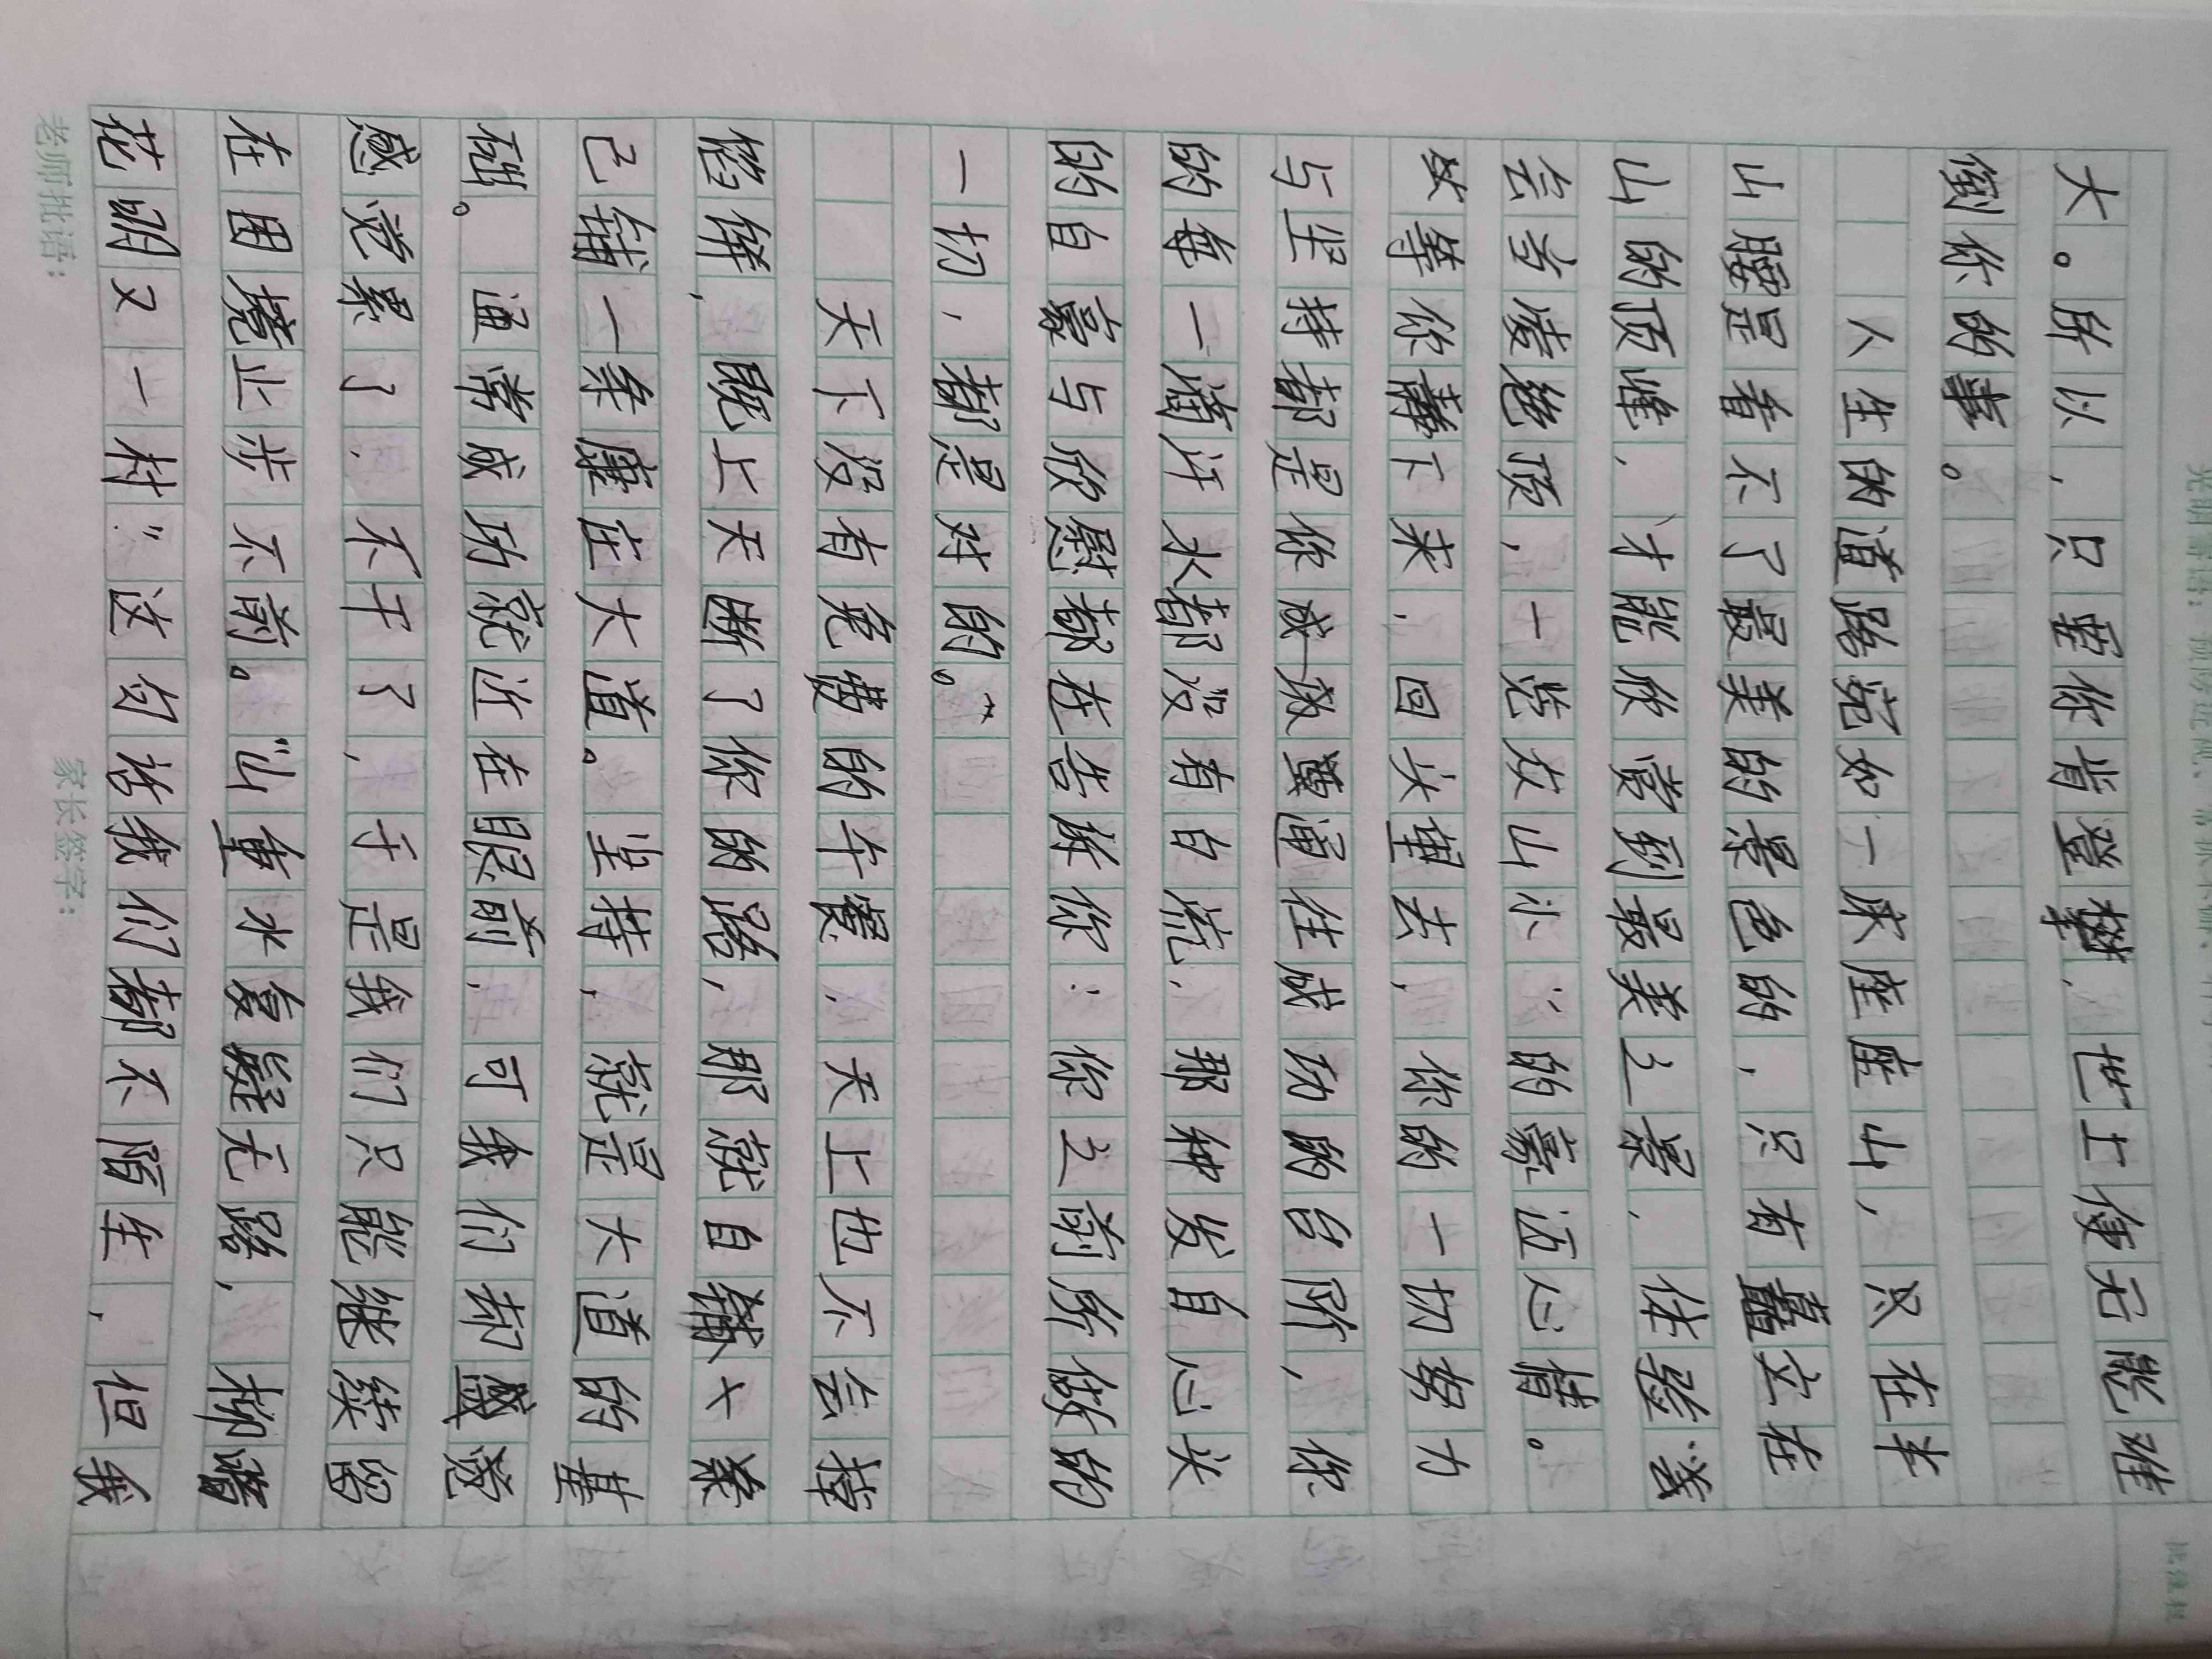 大。所以，只要你肯登攀，世上便无能难
倒你的事。
人生的道路宛如一床座座山，只在半
山腰是看不了最美的景色的，只有矗立在
山的顶峰，才能欣赏到最美之景，体验"当
会当凌绝顶，一览众山小"的豪迈心情。
故等你静下来，回头望去，你的一切努力
与坚持都是你成一級奠通往成功的台阶，你
的每一滴汗水都没有白流，那种发自心头
的自豪与欣慰都在告诉你：你之前所做的
一切，都是对的。"
天下没有免费的午餐，天上也不会掉
馅饼，既上天断了你的路，那就自铺十条
己铺一条康庄大道。坚持，就是大道的基
础。通常成功就近在眼前，可我们却盛感
感觉累了，不干了，于是我们只能继续留
在困境止步不前。"山重水复疑无路，柳暗
花明又一村"这句话我们都不陌生，但我
老师批语：
家长签字：